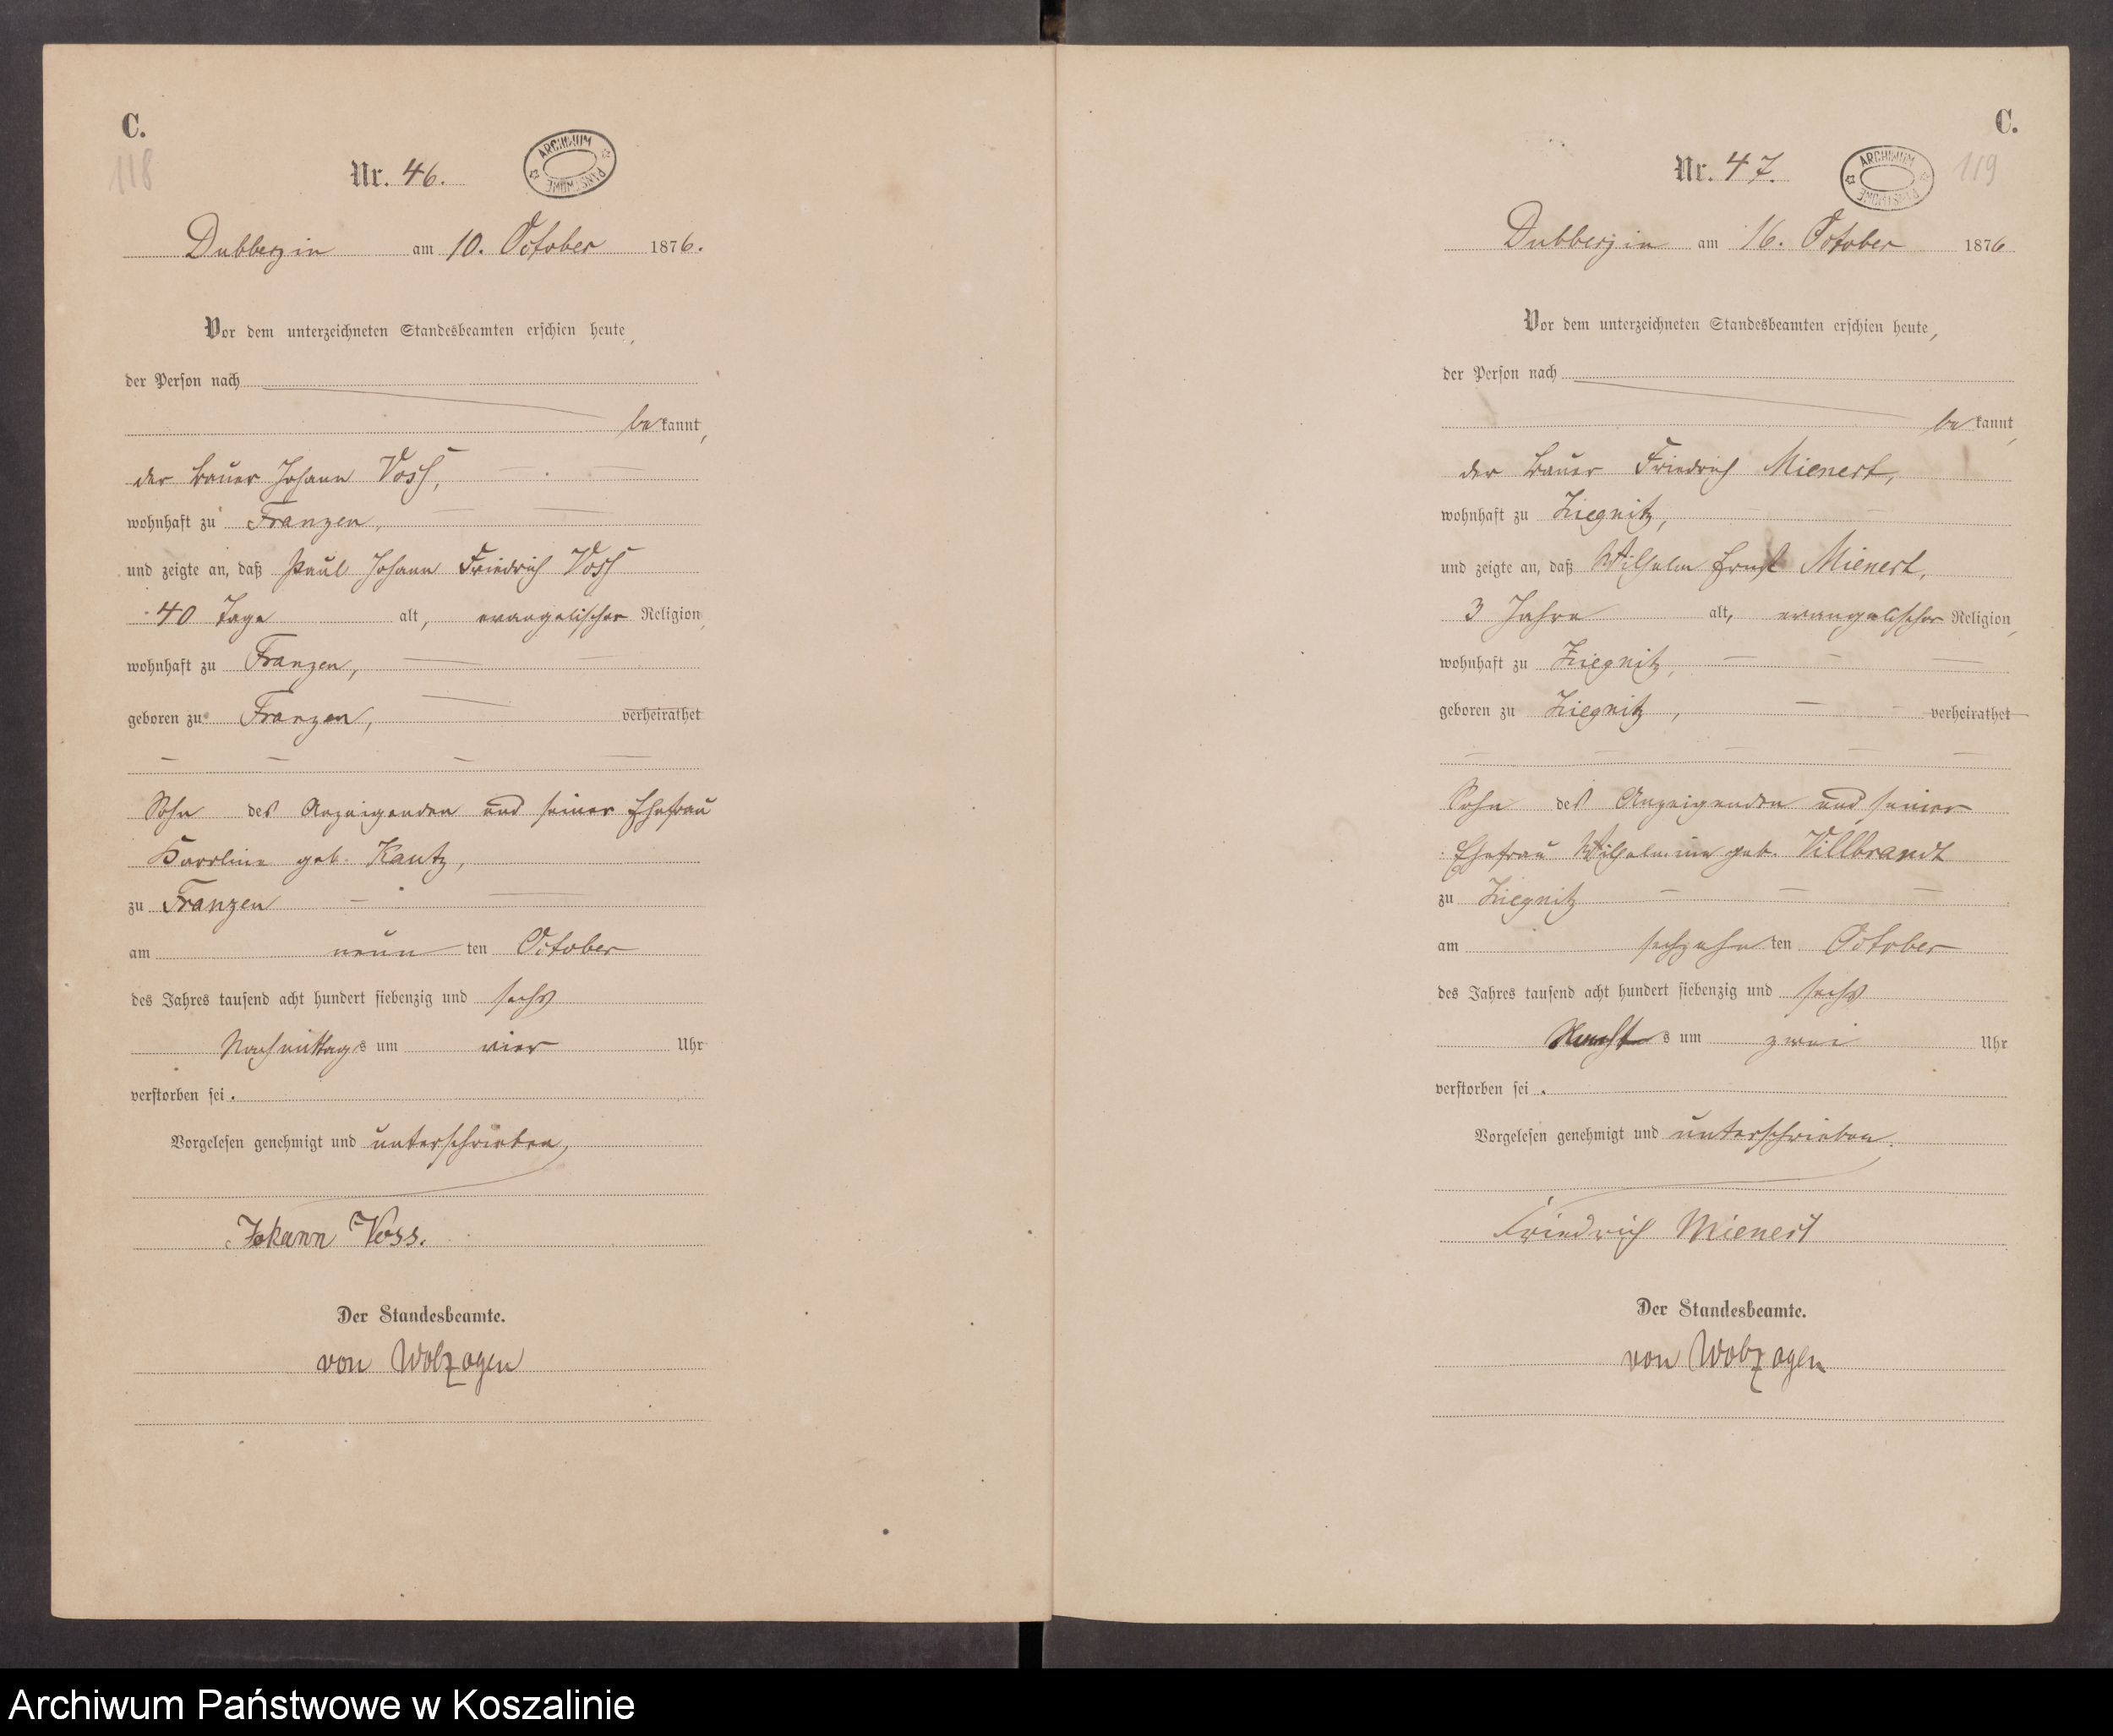 C.
118
Nr. 46.
ARCHIWUM PAŃSTWOWE
Dubberzin am 10. October 1876.
Vor dem unterzeichneten Standesbeamten erschien heute,
der Person nach
bekannt,
der Bauer Johann Voss,
wohnhaft zu Franzen,
und zeigte an, daß Paul Johann Friedrich Voss
40 Tage alt, evangelischer Religion,
wohnhaft zu Franzen,
geboren zu Franzen, verheirathet
Sohn des Anzeigenden und seiner Ehefrau
Karoline geb. Kautz,
zu Franzen
am neun ten October
des Jahres tausend acht hundert siebenzig und sechs
Nachmittags um vier Uhr
verstorben sei.
Vorgelesen genehmigt und unterschrieben,
Johann Voss.
Der Standesbeamte.
von Wolzogen
C.
119
Nr. 47.
ARCHIWUM PAŃSTWOWE
Dubberzin am 16. October 1876
Vor dem unterzeichneten Standesbeamten erschien heute,
der Person nach
bekannt,
der Bauer Friedrich Mienert,
wohnhaft zu Ziegnitz,
und zeigte an, daß Wilhelm Ernst Mienert,
3 Jahre alt, evangelischer Religion,
wohnhaft zu Ziegnitz,
geboren zu Ziegnitz, verheirathet
Sohn des Anzeigenden und seiner
Ehefrau Wilhelmine geb. Villbrandt
zu Ziegnitz
am sechzehn ten October
des Jahres tausend acht hundert siebenzig und sechs
Nachts um zwei Uhr
verstorben sei.
Vorgelesen genehmigt und unterschrieben.
Friedrich Mienert
Der Standesbeamte.
von Wolzogen
Archiwum Państwowe w Koszalinie